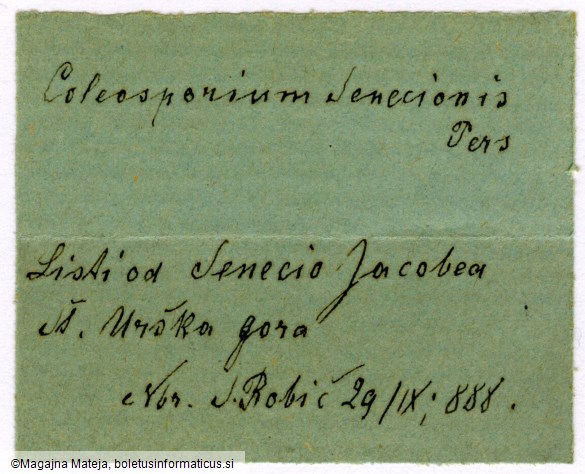 Coleosporium Senecionis
Pers
Listi od Senecio Jacobea
Št. Urška gora
Nbr. S. Robič 29/IX; 888.
©Magajna Mateja, boletusinformaticus.si